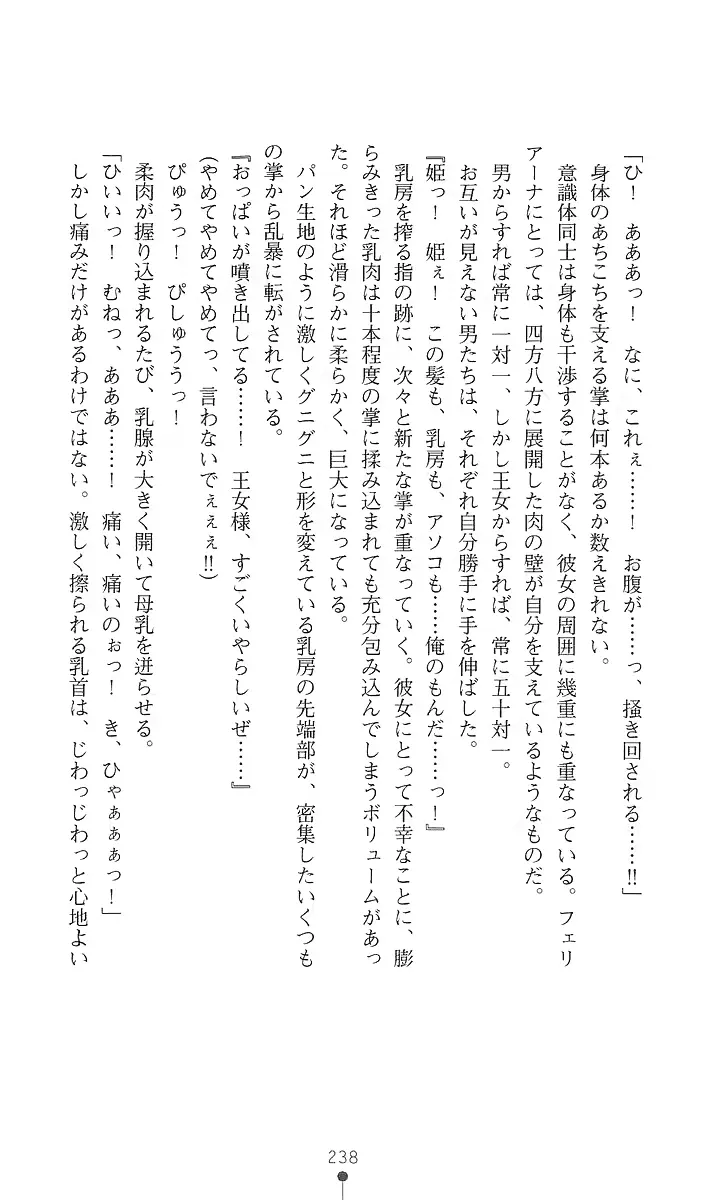 「ひ！　あああっ！　なに、これぇ……！　お腹が……っ、掻き回される……!!」
身体のあちこちを支える掌は何本あるか数えきれない。
意識体同士は身体も干渉することがなく、彼女の周囲に幾重にも重なっている。フェリ
アーナにとっては、四方八方に展開した肉の壁が自分を支えているようなものだ。
男からすれば常に一対一、しかし王女からすれば、常に五十対一。
お互いが見えない男たちは、それぞれ自分勝手に手を伸ばした。
『姫っ！　姫ぇ！　この髪も、乳房も、アソコも……俺のもんだ……っ！』
乳房を搾る指の跡に、次々と新たな掌が重なっていく。彼女にとって不幸なことに、膨
らみきった乳肉は十本程度の掌に揉み込まれても充分包み込んでしまうボリュームがあっ
た。それほど滑らかに柔らかく、巨大になっている。
パン生地のように激しくグニグニと形を変えている乳房の先端部が、密集したいくつも
の掌から乱暴に転がされている。
『おっぱいが噴き出してる……！　王女様、すごくいやらしいぜ……』
(やめてやめてやめてっ、言わないでぇぇぇ!!)
ぴゅうっ！　ぴしゅううっ！
柔肉が握り込まれるたび、乳腺が大きく開いて母乳を迸らせる。
「ひいいっ！　むねっ、あああ……！　痛い、痛いのぉっ！　き、ひゃぁぁぁっ！」
しかし痛みだけがあるわけではない。激しく擦られる乳首は、じわっじわっと心地よい
238